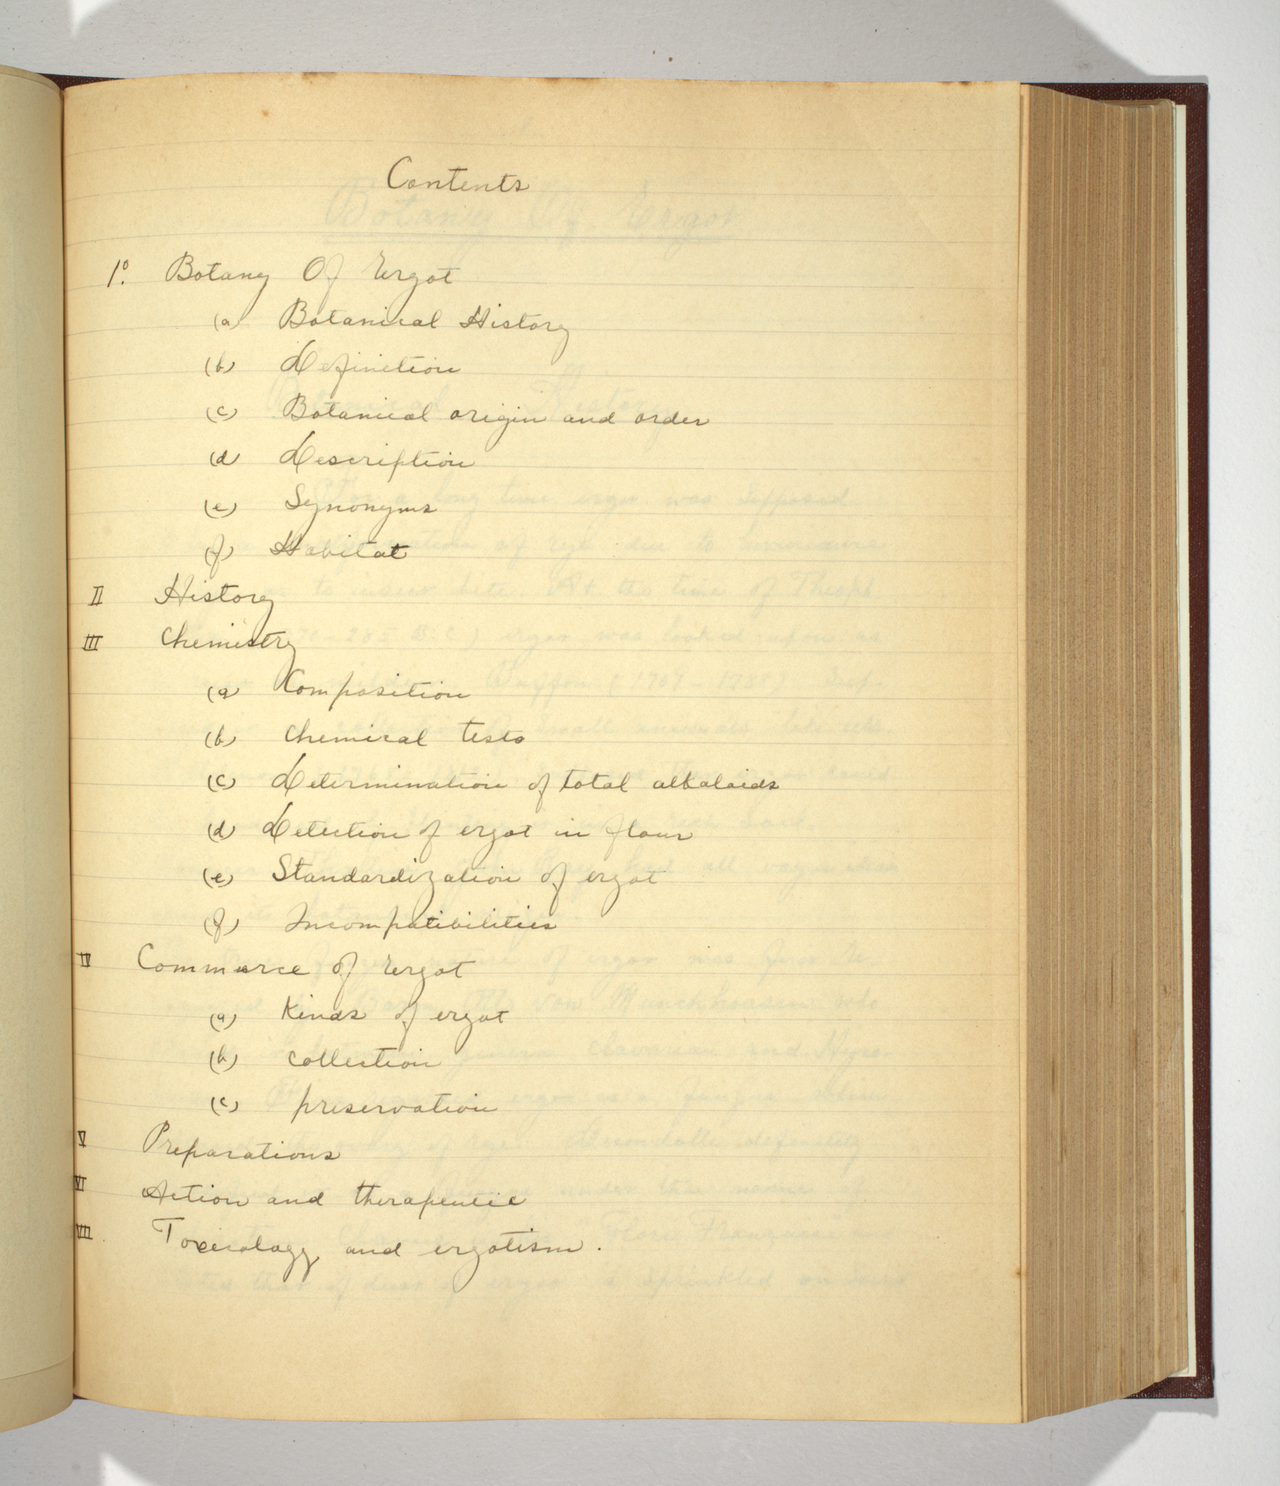 Contents
1º. Botany Of Ergot
(a) Botanical History
(b) Definition
(c) Botanical origin and order
(d) Description
(e) Synonyms
(f) Habitat
II History
III Chemistry
(a) Composition
(b) Chemical tests
(c) Determination of total alkaloids
(d) Detection of ergot in flour
(e) Standardization of ergot
(f) Incompatibilities
IV Commerce of Ergot
(a) Kinds of ergot
(b) collection
(c) preservation
V Preparations
VI Action and therapeutic
VII. Toxicology and ergotism.